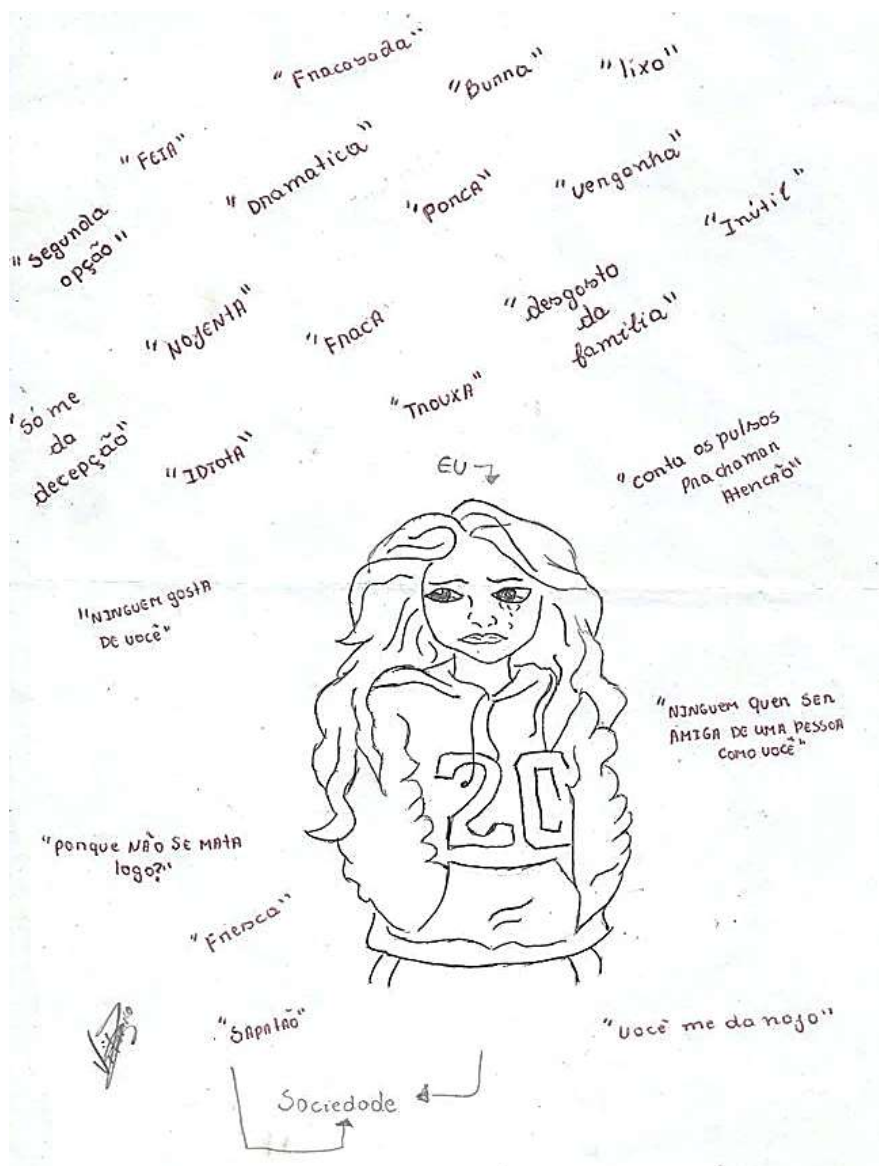 "Fracasada"
"Burra"
"lixo"
"FEIA"
"Dramatica"
"PORCA"
"vergonha"
"Inútil"
"Segunda
opção"
"NOJENTA"
"FRACA"
"desgosto
da
família"
"Só me
da
decepção"
"IDIOTA"
"TROUXA"
"corta os pulsos
pra chamar
AtencÃO"
EU
"NINGUEM gostA
DE você"
"NINGUEM quer SER
AMIGA DE UMA PESSOA
COMO VOCÊ"
"porque NÃO SE MATA
logo?"
"Fresca"
"SAPATÃO"
"Você me da nojo"
Sociedade
20